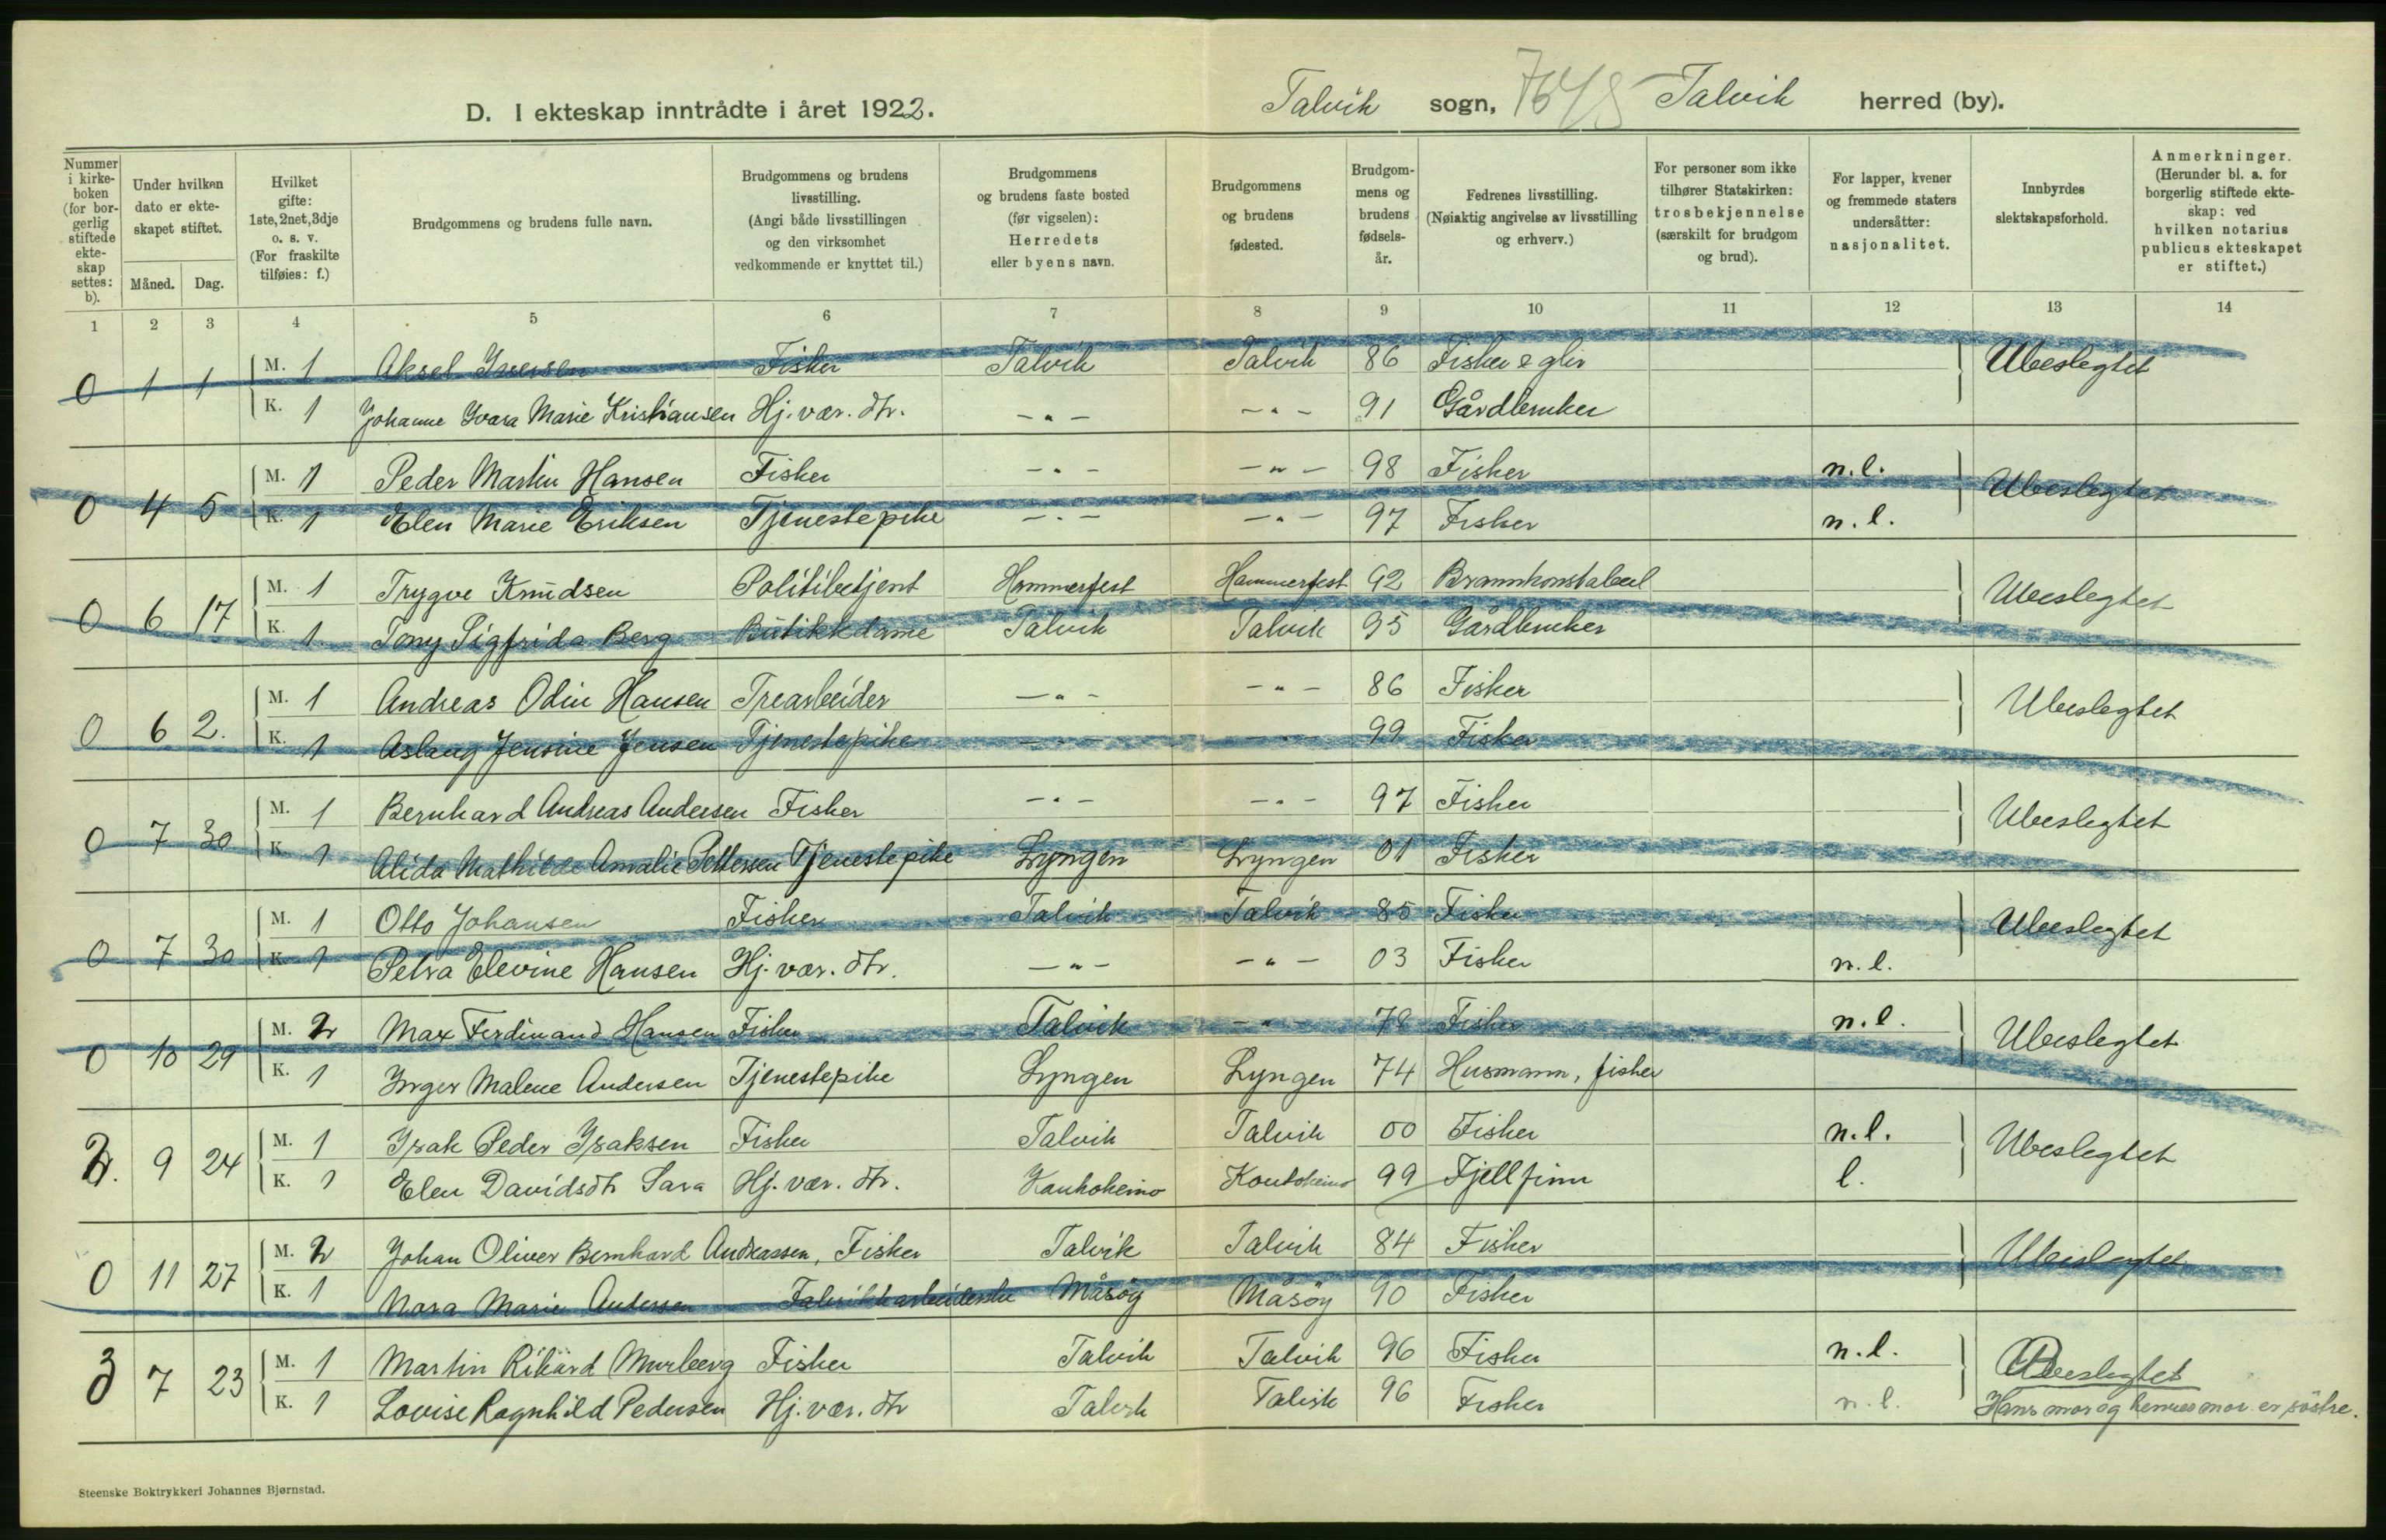 D. I ekteskap inntrådte i året 1922. Talvik sogn, Talvik herred (by).
Nummer i kirke- boken (for bor- gerlig stiftede ekte- skap settes: b).
Under hvilken dato er ekte- skapet stiftet.
Måned. Dag.
Hvilket gifte: 1ste, 2net, 3dje o. s. v. (For fraskilte tilføies: f.)
Brudgommens og brudens fulle navn.
Brudgommens og brudens livsstilling. (Angi både livsstillingen og den virksomhet vedkommende er knyttet til.)
Brudgommens og brudens faste bosted (før vigselen): Herredets eller byens navn.
Brudgommens og brudens fødested.
Brudgom- mens og brudens fødsels- år.
Fedrenes livsstilling. (Nøiaktig angivelse av livsstilling og erhverv.)
For personer som ikke tilhører Statskirken: trosbekjennelse (særskilt for brudgom og brud).
For lapper, kvener og fremmede staters undersåtter: nasjonalitet.
Innbyrdes slektskapsforhold.
Anmerkninger. (Herunder bl. a. for borgerlig stiftede ekte- skap: ved hvilken notarius publicus ekteskapet er stiftet.)
1 2 3 4 5 6 7 8 9 10 11 12 13 14
0 1 1 M. 1 Aksel Iversen Fisker Talvik Talvik 86 Fisker Ubeslegtet
K. 1 Johanne Marie Kristiansen Hj. vær. dtr. -"- -"- 91 Gårdbruker
0 4 5 M. 1 Peder Martin Hansen Fisker -"- -"- 98 Fisker n.l. Ubeslegtet
K. 1 Elen Marie Eriksen Tjenestepike -"- -"- 97 Fisker n.l.
0 6 17 M. 1 Trygve Knudsen Politibetjent Hammerfest Hammerfest 92 Brannkonstabel Ubeslegtet
K. 1 Tony Sigfrida Berg Butikkdame Talvik Talvik 95 Gårdbruker
0 6 2. M. 1 Andreas Odin Hansen Trearbeider -"- -"- 86 Fisker Ubeslegtet
K. 1 Aslaug Jensine Jensen Tjenestepike -"- -"- 99 Fisker
0 7 30 M. 1 Bernhard Andreas Andersen Fisker -"- -"- 97 Fisker Ubeslegtet
K. 1 Alida Mathilde Amalie Pettersen Tjenestepike Lyngen Lyngen 01 Fisker
0 7 30 M. 1 Otto Johansen Fisker Talvik Talvik 85 Fisker Ubeslegtet
K. 1 Petra Elevine Hansen Hj. vær. dtr. -"- -"- 03 Fisker n.l.
0 10 29 M. 2 Max Ferdinand Hansen Fisker Talvik -"- Fisker n.l. Ubeslegtet
K. 1 Inger Malene Andersen Tjenestepike Lyngen Lyngen 74 Husmann, fisker
2. 9 24 M. 1 Isak Peder Isaksen Fisker Talvik Talvik 00 Fisker n.l. Ubeslegtet
K. 1 Elen Davidsdtr Sara Hj. vær. dtr. Kautokeino Koutokeino 99 Fjellfinn l.
0 11 27 M. 2 Johan Oliver Bernhard Andreassen, Fisker Talvik Talvik 84 Fisker Ubeslegtet
K. 1 Nora Marie Andersen Fabrikkarbeiderske Måsøy Måsøy 90 Fisker
3 7 23 M. 1 Martin Rikard Murberg Fisker Talvik Talvik 96 Fisker n.l. Beslegtet
K. 1 Lovise Ragnhild Pedersen Hj. vær. dtr Talvik Talvik 96 Fisker n.l. Hans mor og hennes mor er søstre.
Steenske Boktrykkeri Johannes Bjørnstad.